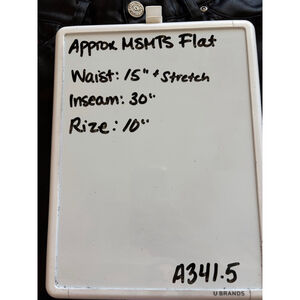 Approx MSMTS Flat
Waist: 15" + Stretch
Inseam: 30"
Rize: 10"
A341.5
U BRANDS